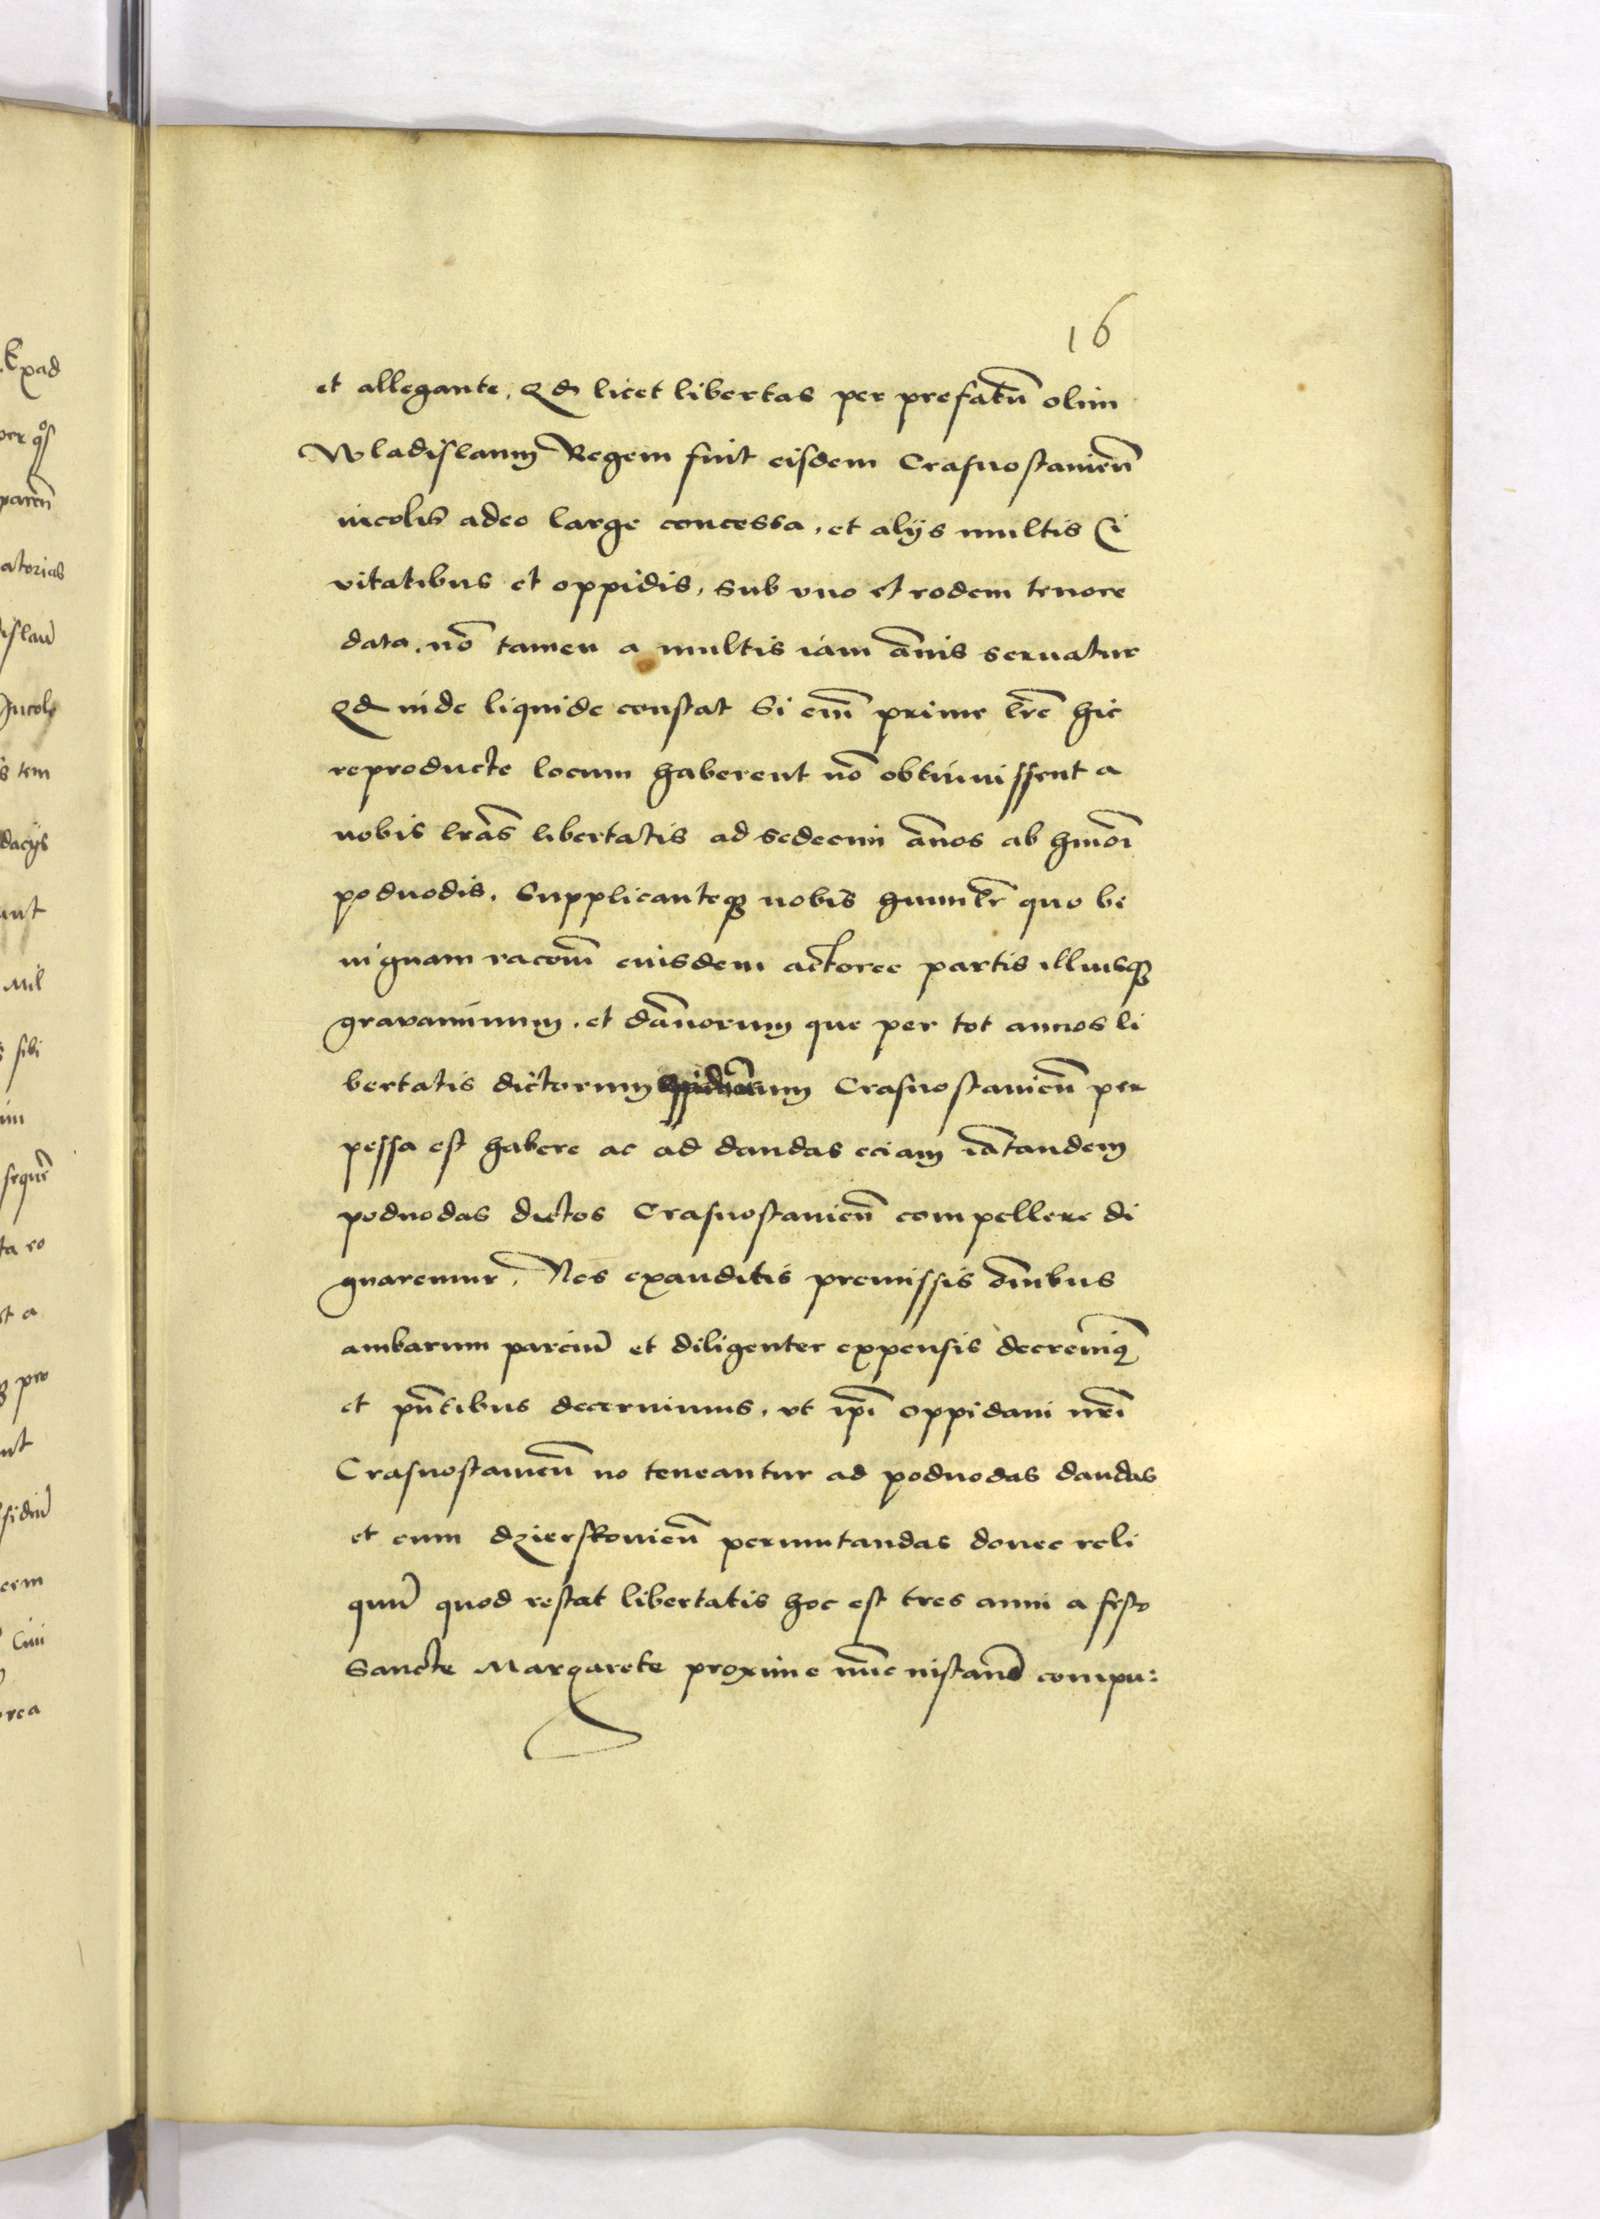 16
et allegante, qd licet libertas per prefatū olim
Wladislaum Regem fuit eisdem Crasnostamien̄
incolis adeo large concessa, et alijs multis Ci
vitatibus et oppidis, sub vno et eodem tenore
data, nō tamen a multis iam ānis seruatur
qd inde liquide constat Si em̄ prime lrē hic
reproducte locum haberent nō obtinuissent a
nobis lrās libertatis ad sedecim ānos ab hmōi
poduodis. Supplicanteqꝫ nobis humilr̄ quo be
nignam racōm̄ eiusdem actoree partis illiusqꝫ
grauaminum, et dānorum que per tot annos li
bertatis dictorum Crasnostauien̄ per
pessa est habere ac ad dandas eciam iā tandem
poduodas dictos Crasnostauien̄ compellere di
gnaremur. Nos exauditis premissis ōmībus
ambarum parciū et diligenter expensis decreuimꝰ
et pn̄tibus decernimus, vt ipī oppidani nrī
Crasnostauien̄ no teneantur ad poduodas dandas
et cum dzierskouien̄ permutandas donec reli
quū quod restat libertatis hoc est tres anni a festo
Sancte Margarete proxime nūc instan̄ compu: